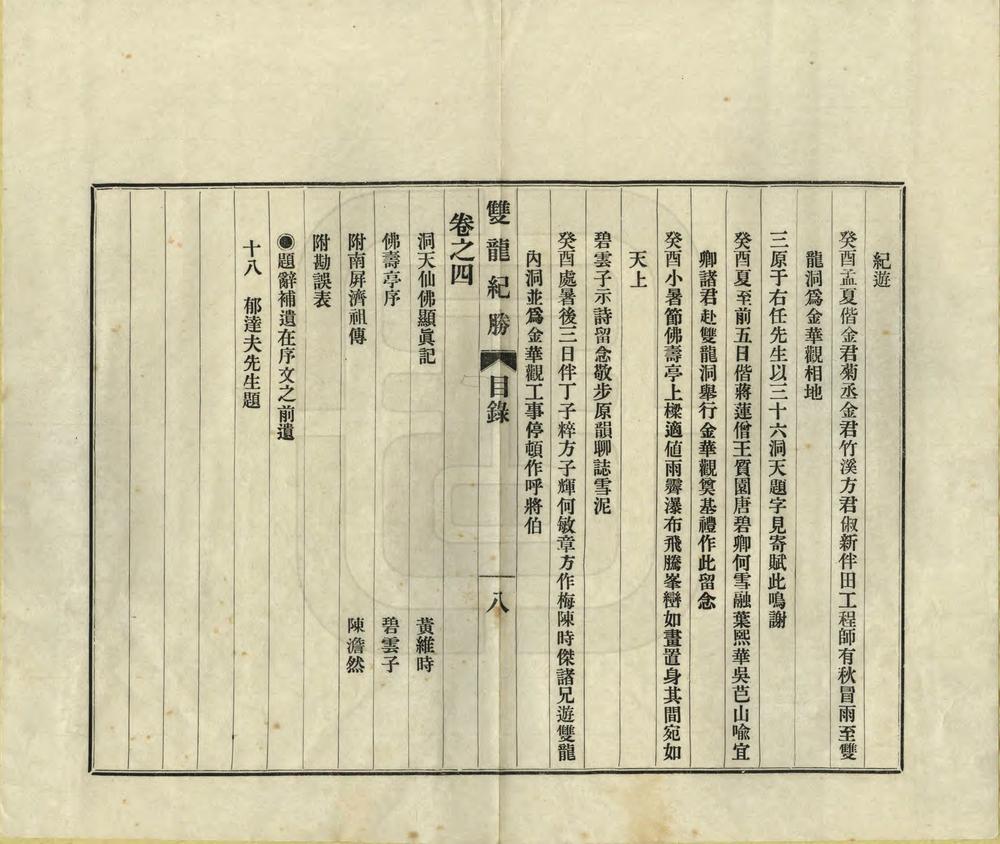 紀遊
癸酉孟夏偕金君菊丞金君竹溪方君俶新伴田工程師有秋冒雨至雙
龍洞爲金華觀相地
三原于右任先生以三十六洞天題字見寄賦此鳴謝
癸酉夏至前五日偕蔣蓮僧王質園唐碧卿何雪融葉熙華吳芑山喩宜
卿諸君赴雙龍洞舉行金華觀奠基禮作此留念
癸酉小暑節佛壽亭上樑適値雨霽瀑布飛騰峯巒如畫置身其間宛如
天上
碧雲子示詩留念敬步原韻聊誌雪泥
癸酉處暑後三日伴丁子粹方子輝何敏章方作梅陳時傑諸兄遊雙龍
內洞並爲金華觀工事停頓作呼將伯
雙龍紀勝 目錄 八
卷之四
洞天仙佛顯眞記 黃維時
佛壽亭序 碧雲子
附南屏濟祖傳 陳澹然
附勘誤表
◉題辭補遺在序文之前遺
十八 郁達夫先生題